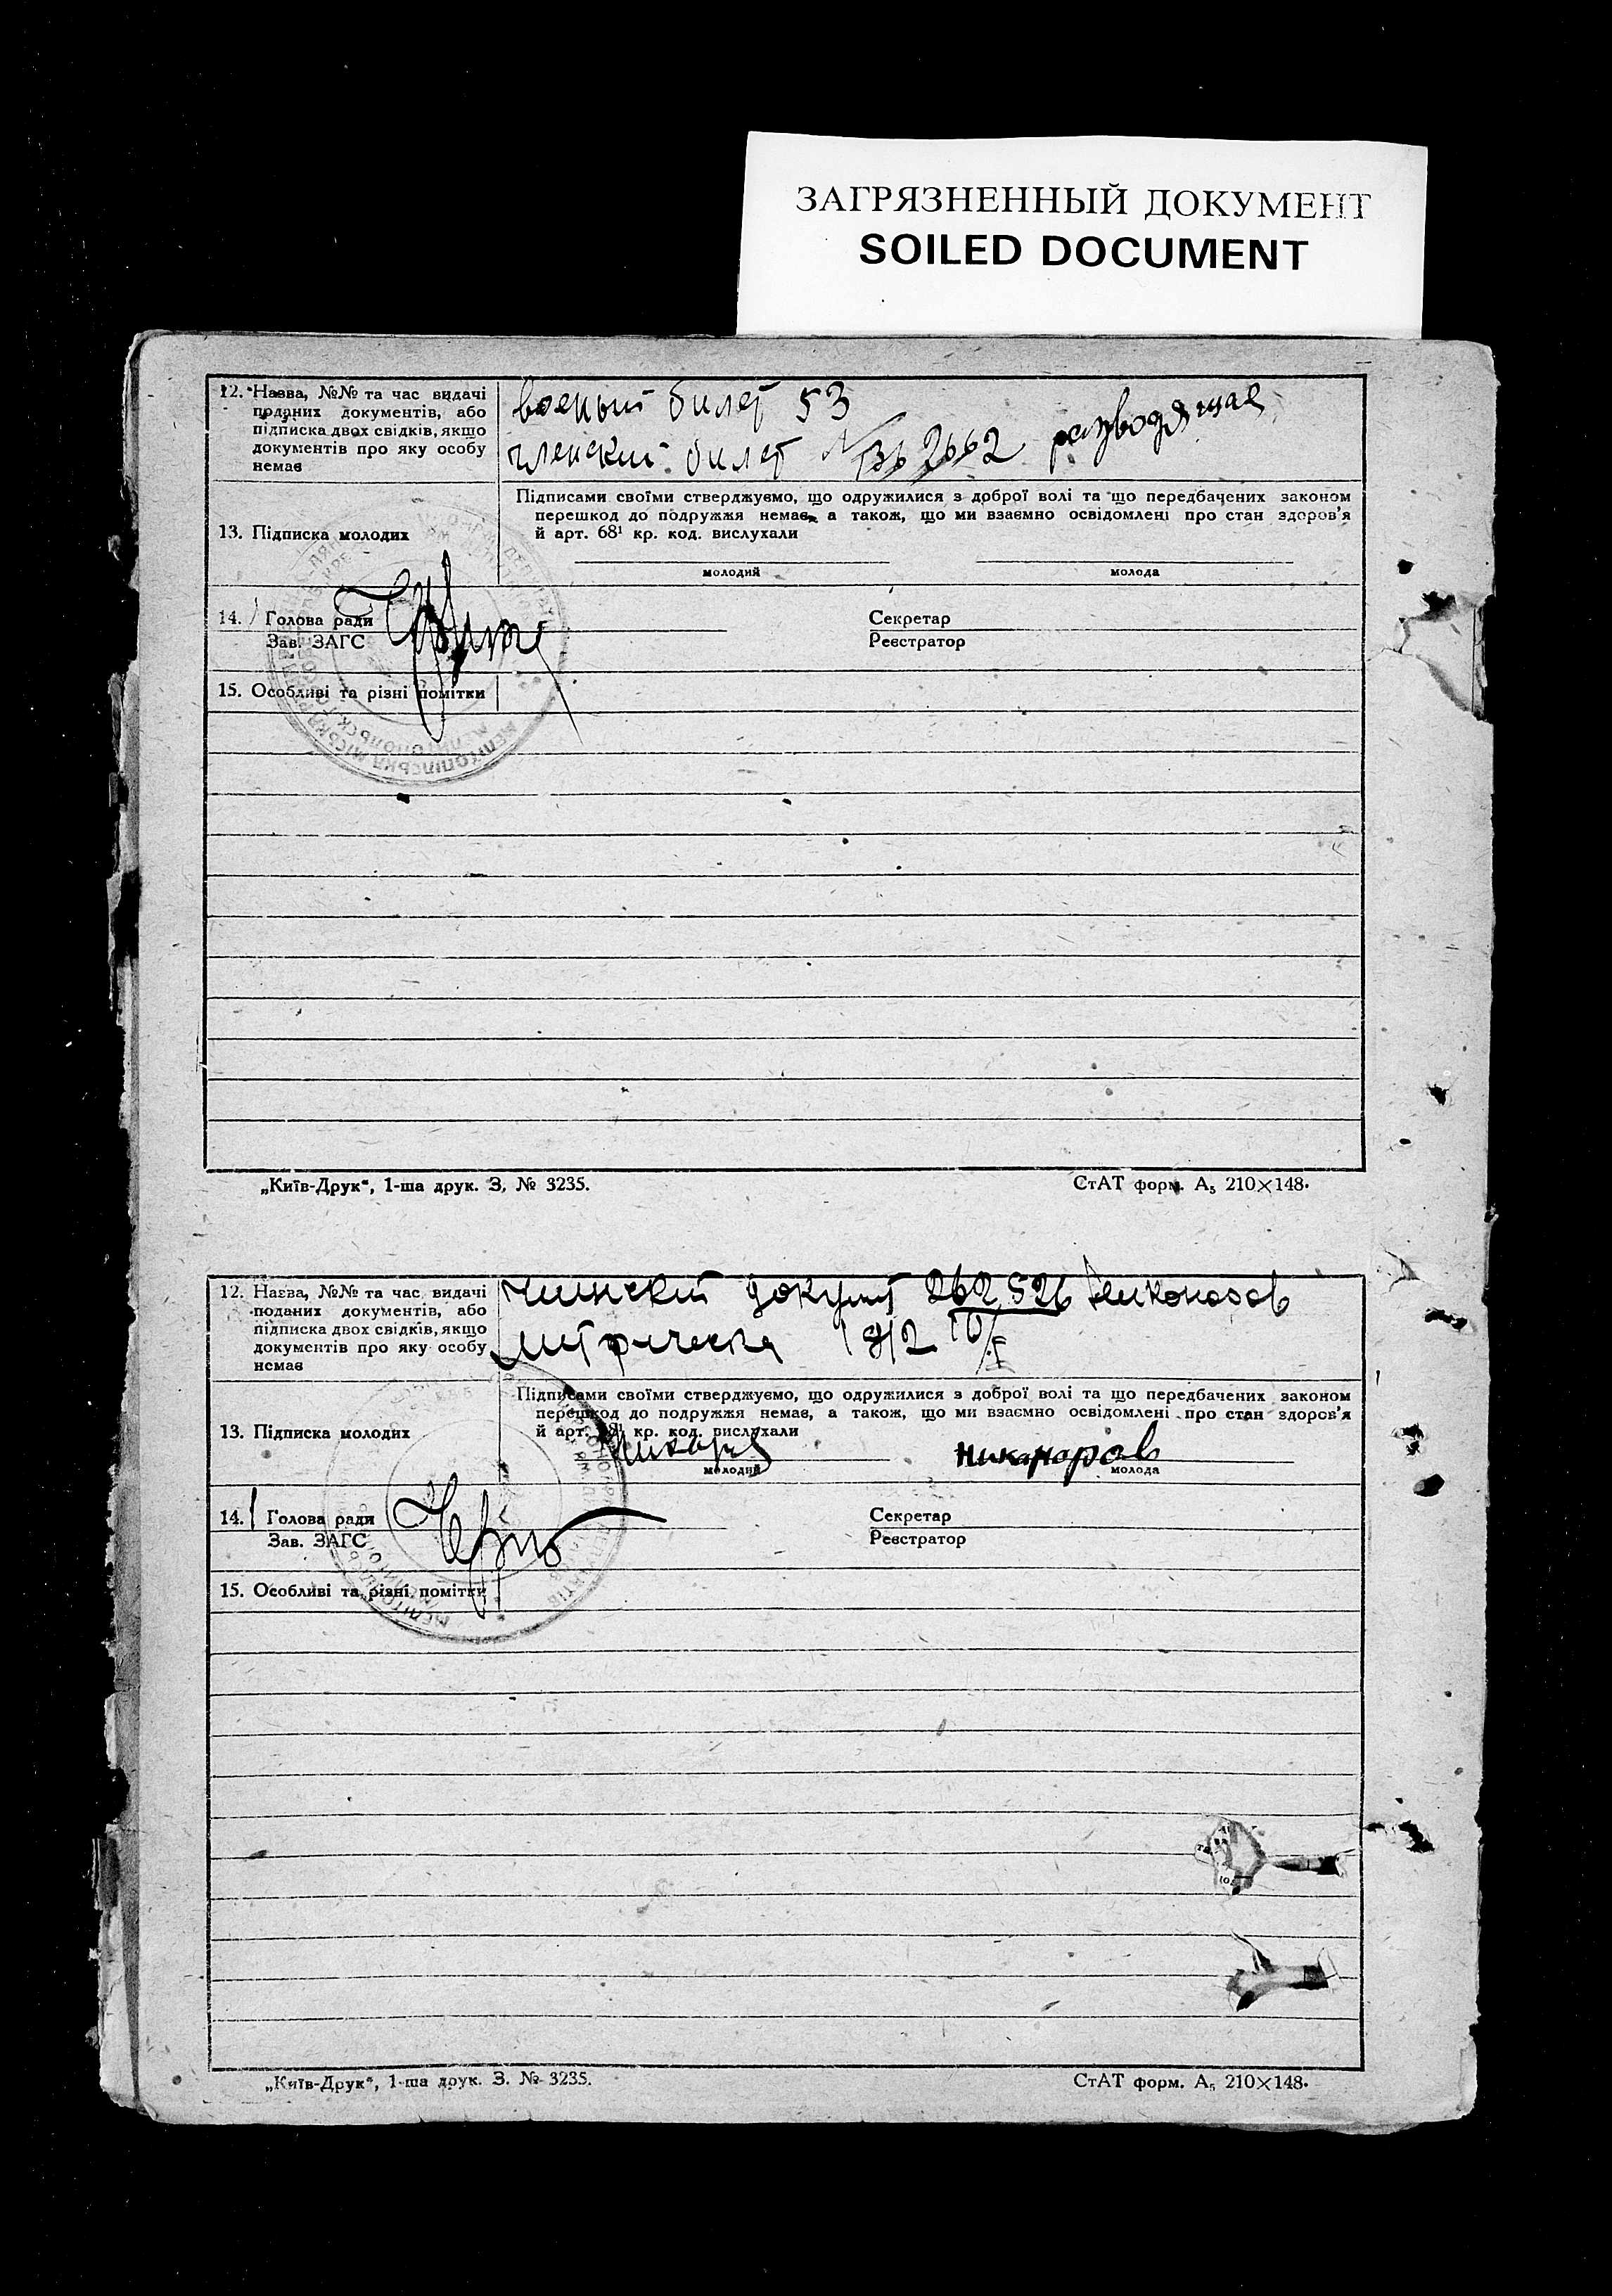 ЗАГРЯЗНЕННЫЙ ДОКУМЕНТ
SOILED DOCUMENT
12. Назва, №№ та час видачі
поданих документів, або
підписка двох свідків, якщо
документів про яку особу
немає
военый билет 53
членский билет 2662
13. Підписка молодих
Підписами своїми стверджуємо, що одружилися з доброї волі та що передбачених законом
перешкод до подружжя немає, а також, що ми взаємно освідомлені про стан здоров'я
й арт. 68¹ кр. код. вислухали
молодий молода
14. Голова ради Секретар
Зав. ЗАГС Реєстратор
15. Особливі та різні помітки
„Київ-Друк“, 1-ша друк. З. № 3235. СтАТ форм. А₅ 210×148.
12. Назва, №№ та час видачі
поданих документів, або
підписка двох свідків, якщо
документів про яку особу
немає
262526
1912
13. Підписка молодих
Підписами своїми стверджуємо, що одружилися з доброї волі та що передбачених законом
перешкод до подружжя немає, а також, що ми взаємно освідомлені про стан здоров'я
й арт. 68¹ кр. код. вислухали
никаноров
молодий молода
14. Голова ради Секретар
Зав. ЗАГС Реєстратор
15. Особливі та різні помітки
„Київ-Друк“, 1-ша друк. З. № 3235. СтАТ форм. А₅ 210×148.